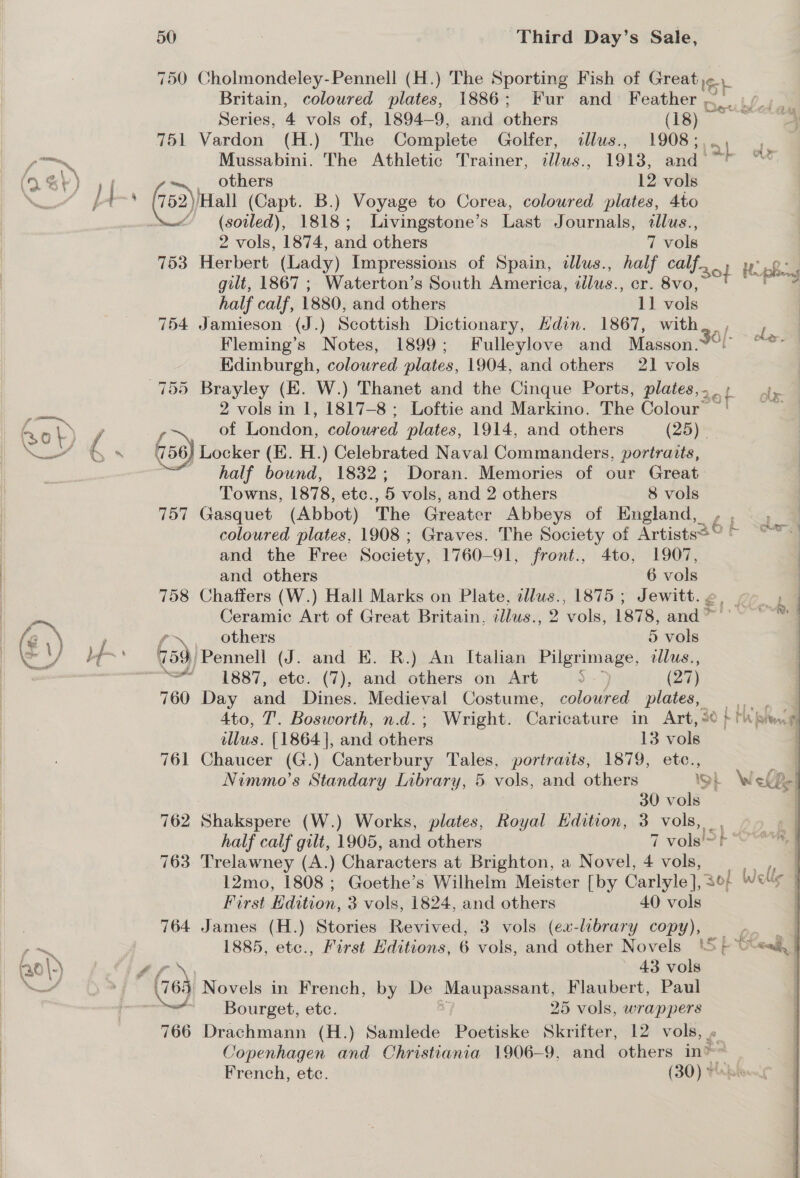 50 Third Day's Sale,
750 Cholmondeley-Pennell (H.) The Sporting Fish of Great
Britain, coloured plates, 1886; Fur and Feather
Series, 4 vols of, 1894–9, and others (18)
751 Vardon (H.) The Complete Golfer, illus., 1908;
Mussabini. The Athletic Trainer, illus., 1913, and
others 12 vols
752 Hall (Capt. B.) Voyage to Corea, coloured plates, 4to
(soiled), 1818; Livingstone's Last Journals, illus.,
2 vols, 1874, and others 7 vols
753 Herbert (Lady) Impressions of Spain, illus., half calf
gilt, 1867; Waterton's South America, illus., cr. 8vo,
half calf, 1880, and others 11 vols
754 Jamieson (J.) Scottish Dictionary, Edin. 1867, with
Fleming's Notes, 1899; Fulleylove and Masson.
Edinburgh, coloured plates, 1904, and others 21 vols
755 Brayley (E. W.) Thanet and the Cinque Ports, plates,
2 vols in 1, 1817–8; Loftie and Markino. The Colour
of London, coloured plates, 1914, and others (25)
756 Locker (E. H.) Celebrated Naval Commanders, portraits,
half bound, 1832; Doran. Memories of our Great
Towns, 1878, etc., 5 vols, and 2 others 8 vols
757 Gasquet (Abbot) The Greater Abbeys of England,
coloured plates, 1908; Graves. The Society of Artists
and the Free Society, 1760–91, front., 4to, 1907,
and others 6 vols
758 Chaffers (W.) Hall Marks on Plate, illus., 1875; Jewitt.
Ceramic Art of Great Britain, illus., 2 vols, 1878, and
others 5 vols
759 Pennell (J. and E. R.) An Italian Pilgrimage, illus.,
1887, etc. (7), and others on Art (27)
760 Day and Dines. Medieval Costume, coloured plates,
4to, T. Bosworth, n.d.; Wright. Caricature in Art,
illus. [1864], and others 13 vols
761 Chaucer (G.) Canterbury Tales, portraits, 1879, etc.,
Nimmo's Standary Library, 5 vols, and others
30 vols
762 Shakspere (W.) Works, plates, Royal Edition, 3 vols,
half calf gilt, 1905, and others 7 vols
763 Trelawney (A.) Characters at Brighton, a Novel, 4 vols,
12mo, 1808; Goethe's Wilhelm Meister [by Carlyle], Wells
First Edition, 3 vols, 1824, and others 40 vols
764 James (H.) Stories Revived, 3 vols (ex-library copy),
1885, etc., First Editions, 6 vols, and other Novels
43 vols
765 Novels in French, by De Maupassant, Flaubert, Paul
Bourget, etc. 25 vols, wrappers
766 Drachmann (H.) Samlede Poetiske Skrifter, 12 vols,
Copenhagen and Christiania 1906–9, and others in
French, etc. (30)